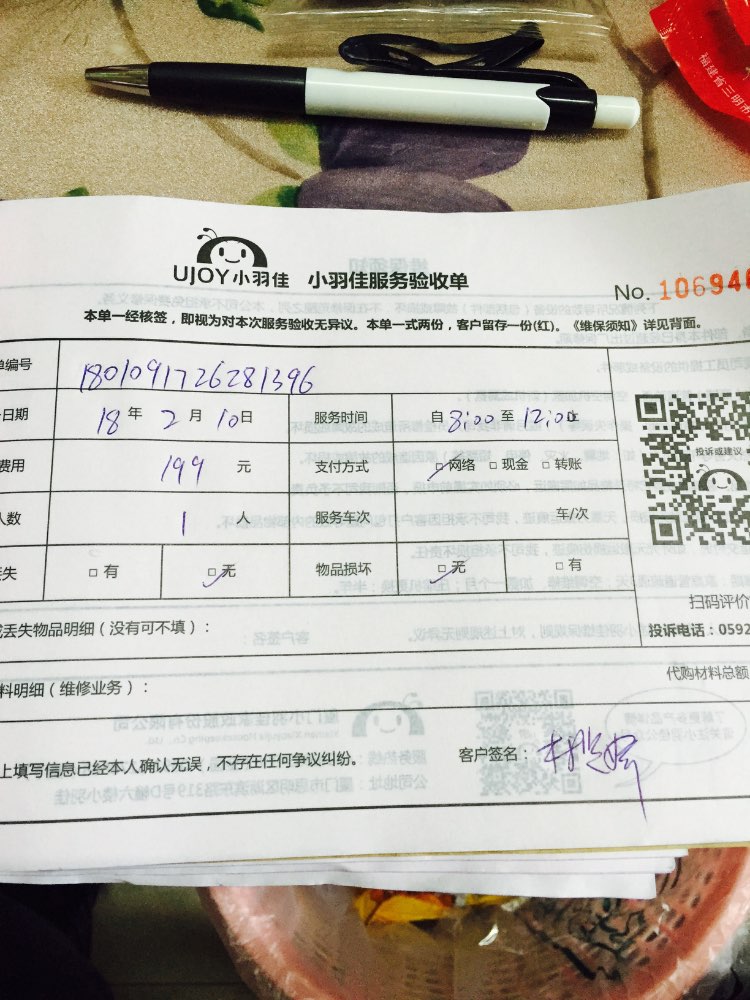 福建省三明市
UJOY小羽佳 小羽佳服务验收单
No. 106948
本单一经核签，即视为对本次服务验收无异议。本单一式两份，客户留存一份(红)。《维保须知》详见背面。
单编号 1801091726281396
日期 18年 2月 10日 服务时间 自 8:00 至 12:00止
费用 199 元 支付方式 □网络 □现金 □转账
人数 1 人 服务车次 车/次
丢失 □有 □无 物品损坏 □无 □有
投诉或建议
扫码评价
丢失物品明细（没有可不填）：
投诉电话：0592
料明细（维修业务）：
代购材料总额
上填写信息已经本人确认无误，不存在任何争议纠纷。
客户签名：